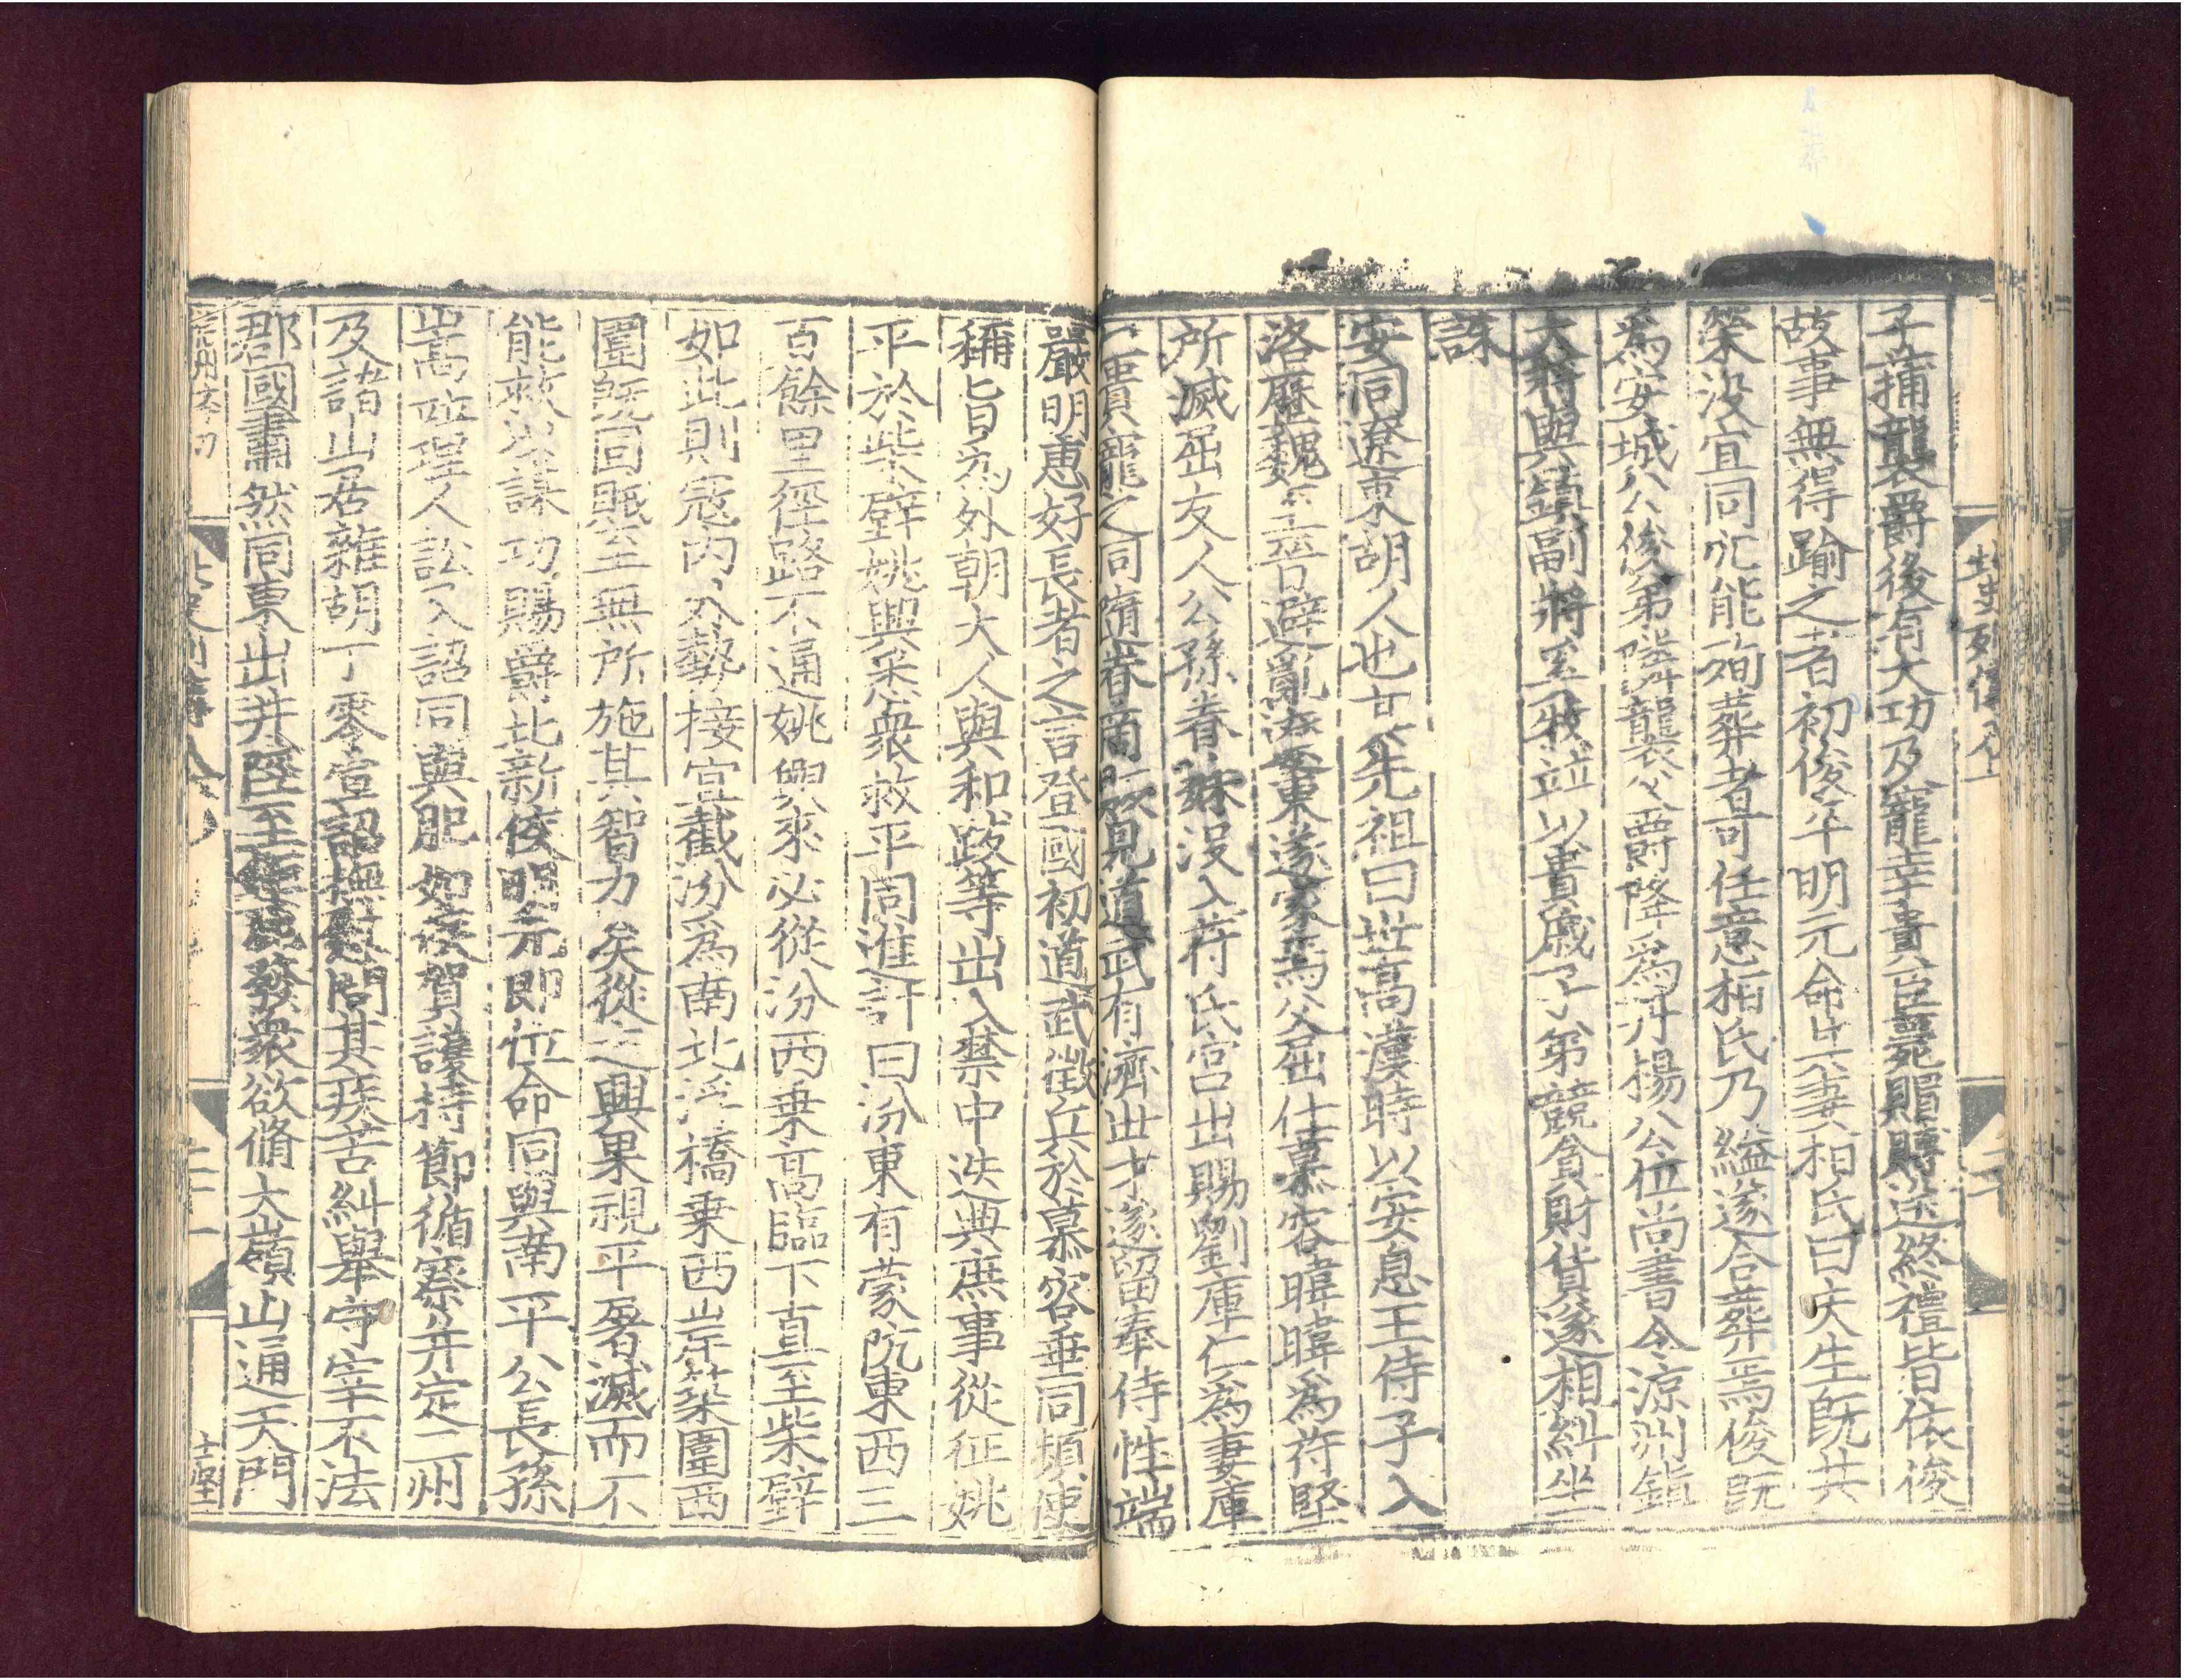 北史列傳八
二十
子蒲襲爵後有大功及寵幸貴臣薨賵賻送終禮皆依俊
故事無得踰之者初俊卒明元命其妻桓氏曰夫生旣共
榮没宜同穴能殉葬者可任意桓氏乃縊遂合葬焉俊旣
爲安城公俊弟隣襲父爵降爲丹楊公位尚書令涼州鎮
大將與鎮副將奚牧竝以貴戚子弟競貪財貨遂相糾坐
誅
安同遼東胡人也其先祖曰世高漢時以安息王侍子入
洛歷魏至晉避亂遼東遂家焉父屈仕慕容暐暐爲苻堅
所滅屈友人公孫眷妹没入苻氏宫出賜劉庫仁爲妻庫
仁貴寵之同隨眷商販見道武有濟世才遂留奉侍性端
嚴明惠好長者之言登國初道武徵兵於慕容垂同頻使
稱旨爲外朝大人與和跋等出入禁中迭典庶事從征姚
平於柴壁姚興悉衆救平同進計曰汾東有蒙阬東西三
百餘里徑路不通姚興來必從汾西乗高臨下直至柴壁
如此則寇内外勢接宜截汾爲南北浮橋乗西岸築圍西
圍旣固賊至無所施其智力矣從之興果視平屠滅而不
能救以謀功賜爵北新侯明元即位命同與南平公長孫
嵩竝理人訟又詔同與肥如侯賀護持節循察并定二州
及諸山居雜胡丁零宣詔撫慰問其疾苦糾舉守宰不法
郡國肅然同東出井陘至鉅鹿發衆欲脩大嶺山通天門
北史列傳八
二十一